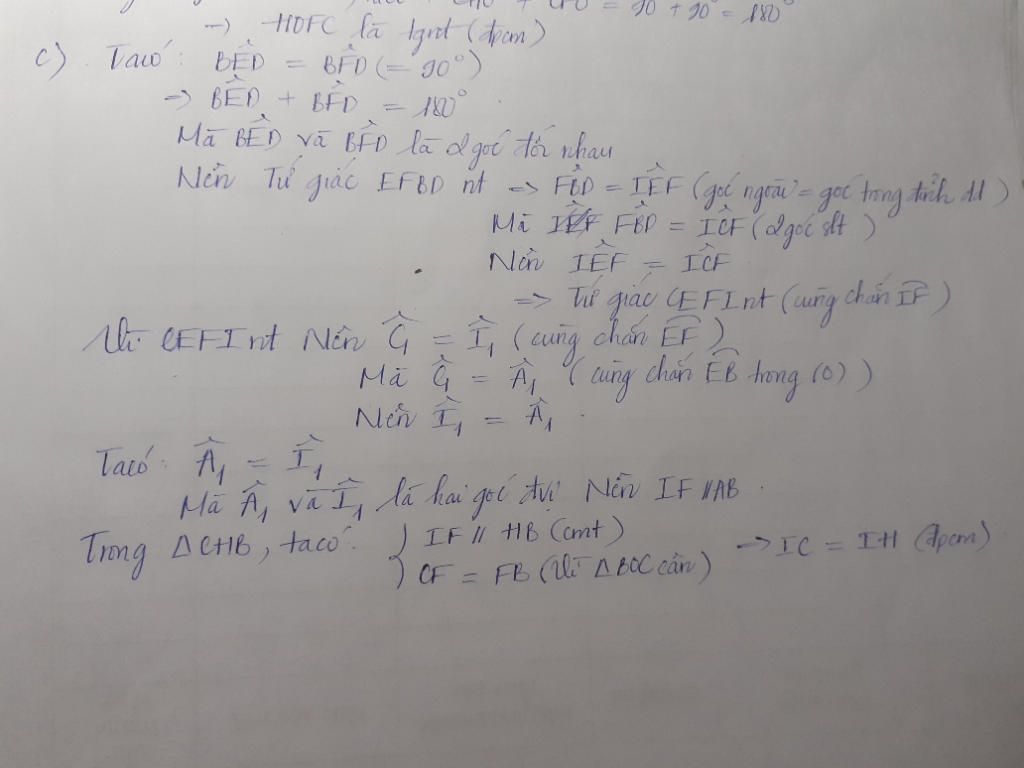 CHO + CFO = 90 + 90° = 180°
→ HOFC là tgnt (đpcm)
c) Ta có: BÊD = BFD (= 90°)
⇒ BÊD + BFD = 180°
Mà BÊD và BFD là 2 góc đối nhau
Nên Tứ giác EFBD nt ⇒ FBD = IÊF (góc ngoài = góc trong đỉnh đd)
Mà FBD = ICF (2 góc slt)
Nên IÊF = ICF
⇒ Tứ giác CEFI nt (cùng chắn IF)
Vì CEFI nt Nên C₁ = I₁ (cùng chắn EF)
Mà C₁ = Â₁ (cùng chắn EB trong (O))
Nên I₁ = Â₁.
Ta có: Â₁ = I₁
Mà Â₁ và I₁ là hai góc đvị Nên IF // AB.
Trong ΔCHB, ta có: { IF // HB (cmt) → IC = IH (đpcm)
CF = FB (Vì ΔBOC cân)